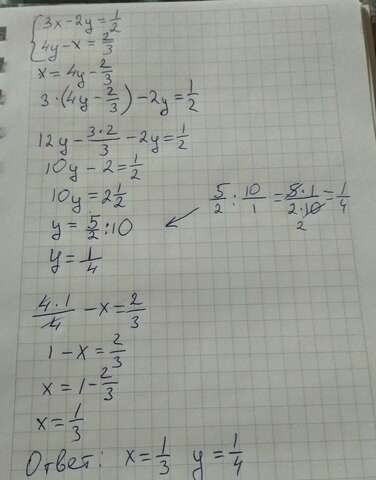 {3x-2y=1/2
{4y-x=2/3
x=4y-2/3
3·(4y-2/3)-2y=1/2
12y-3·2/3-2y=1/2
10y-2=1/2
10y=2 1/2
y=5/2:10
5/2:10/1=5·1/2·10=1/4
2
y=1/4
4·1/4-x=2/3
1-x=2/3
x=1-2/3
x=1/3
Ответ: x=1/3 y=1/4